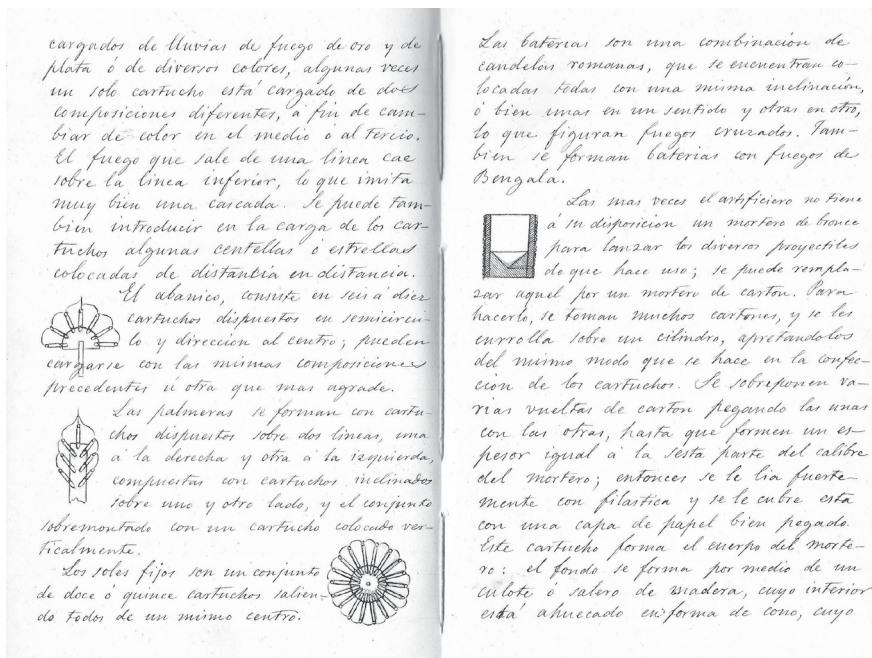 cargados de lluvias de fuego de oro y de
plata ó de diversos colores, algunas veces
un solo cartucho está cargado de dos
composiciones diferentes, á fin de cam-
biar de color en el medio ó al tercio.
El fuego que sale de una linea cae
sobre la linea inferior, lo que imita
muy bien una cascada. Se puede tam-
bien introducir en la carga de los car-
tuchos algunas centellas ó estrellas
colocadas de distancia en distancia.
El abanico, consiste en seis á diez
cartuchos dispuestos en semicircu-
lo y direccion al centro; pueden
cargarse con las mismas composiciones
precedentes ú otra que mas agrade.
Las palmeras se forman con cartu-
chos dispuestos sobre dos lineas, una
á la derecha y otra á la izquierda,
compuestas con cartuchos inclinados
sobre uno y otro lado, y el conjunto
sobremontado con un cartucho colocado ver-
ticalmente.
Los soles fijos son un conjunto
de doce ó quince cartuchos salien-
do todos de un mismo centro.
Las baterias son una combinación de
candelas romanas, que se encuentran co-
locadas todas con una misma inclinación,
ó bien unas en un sentido y otras en otro,
lo que figuran fuegos cruzados. Tam-
bien se forman baterias con fuegos de
Bengala.
Las mas veces el artificiero no tiene
á su disposicion un mortero de bronce
para lanzar los diversos proyectiles
de que hace uso; se puede rempla-
zar aquel por un mortero de carton. Para
hacerlo, se toman muchos cartones, y se les
enrrolla sobre un cilindro, apretandolos
del mismo modo que se hace en la confec-
cion de los cartuchos. Se sobreponen va-
rias vueltas de carton pegando las unas
con las otras, hasta que formen un es-
pesor igual á la sesta parte del calibre
del mortero; entonces se le lia fuerte-
mente con filastica y se le cubre esta
con una capa de papel bien pegado.
Este cartucho forma el cuerpo del morte-
ro: el fondo se forma por medio de un
culote ó salero de madera, cuyo interior
está ahuecado en forma de cono, cuyo